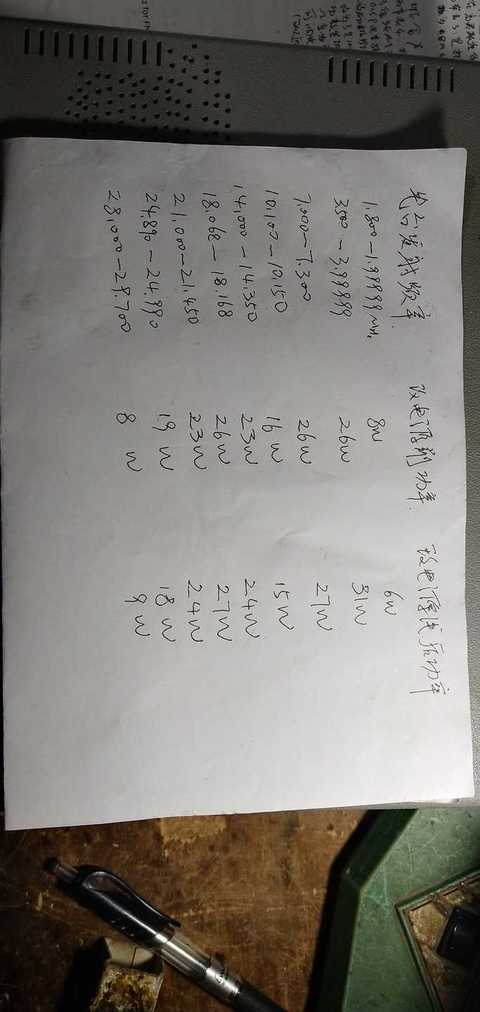 光台发射频率 改电源前功率 改电源后功率
1.800—1.99999MHz 8W 6W
3.500—3.99999 26W 31W
7.000—7.300 26W 27W
10.100—10.150 16W 15W
14.000—14.350 23W 24W
18.068—18.168 26W 27W
21.000—21.450 23W 24W
24.890—24.990 19W 18W
28.000—29.700 8W 9W